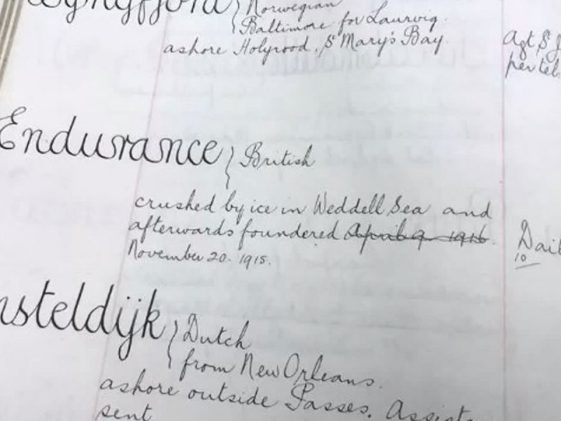 Norwegian
Baltimore for Laurvig.
ashore Holyrood, S Mary's Bay
Agt S J
per tel
Endurance } British
crushed by ice in Weddell Sea and
afterwards foundered April 9 1916.
November 20. 1915.
Dail
10
nsteldijk } Dutch
from New Orleans.
ashore outside Passes. Assist
sent